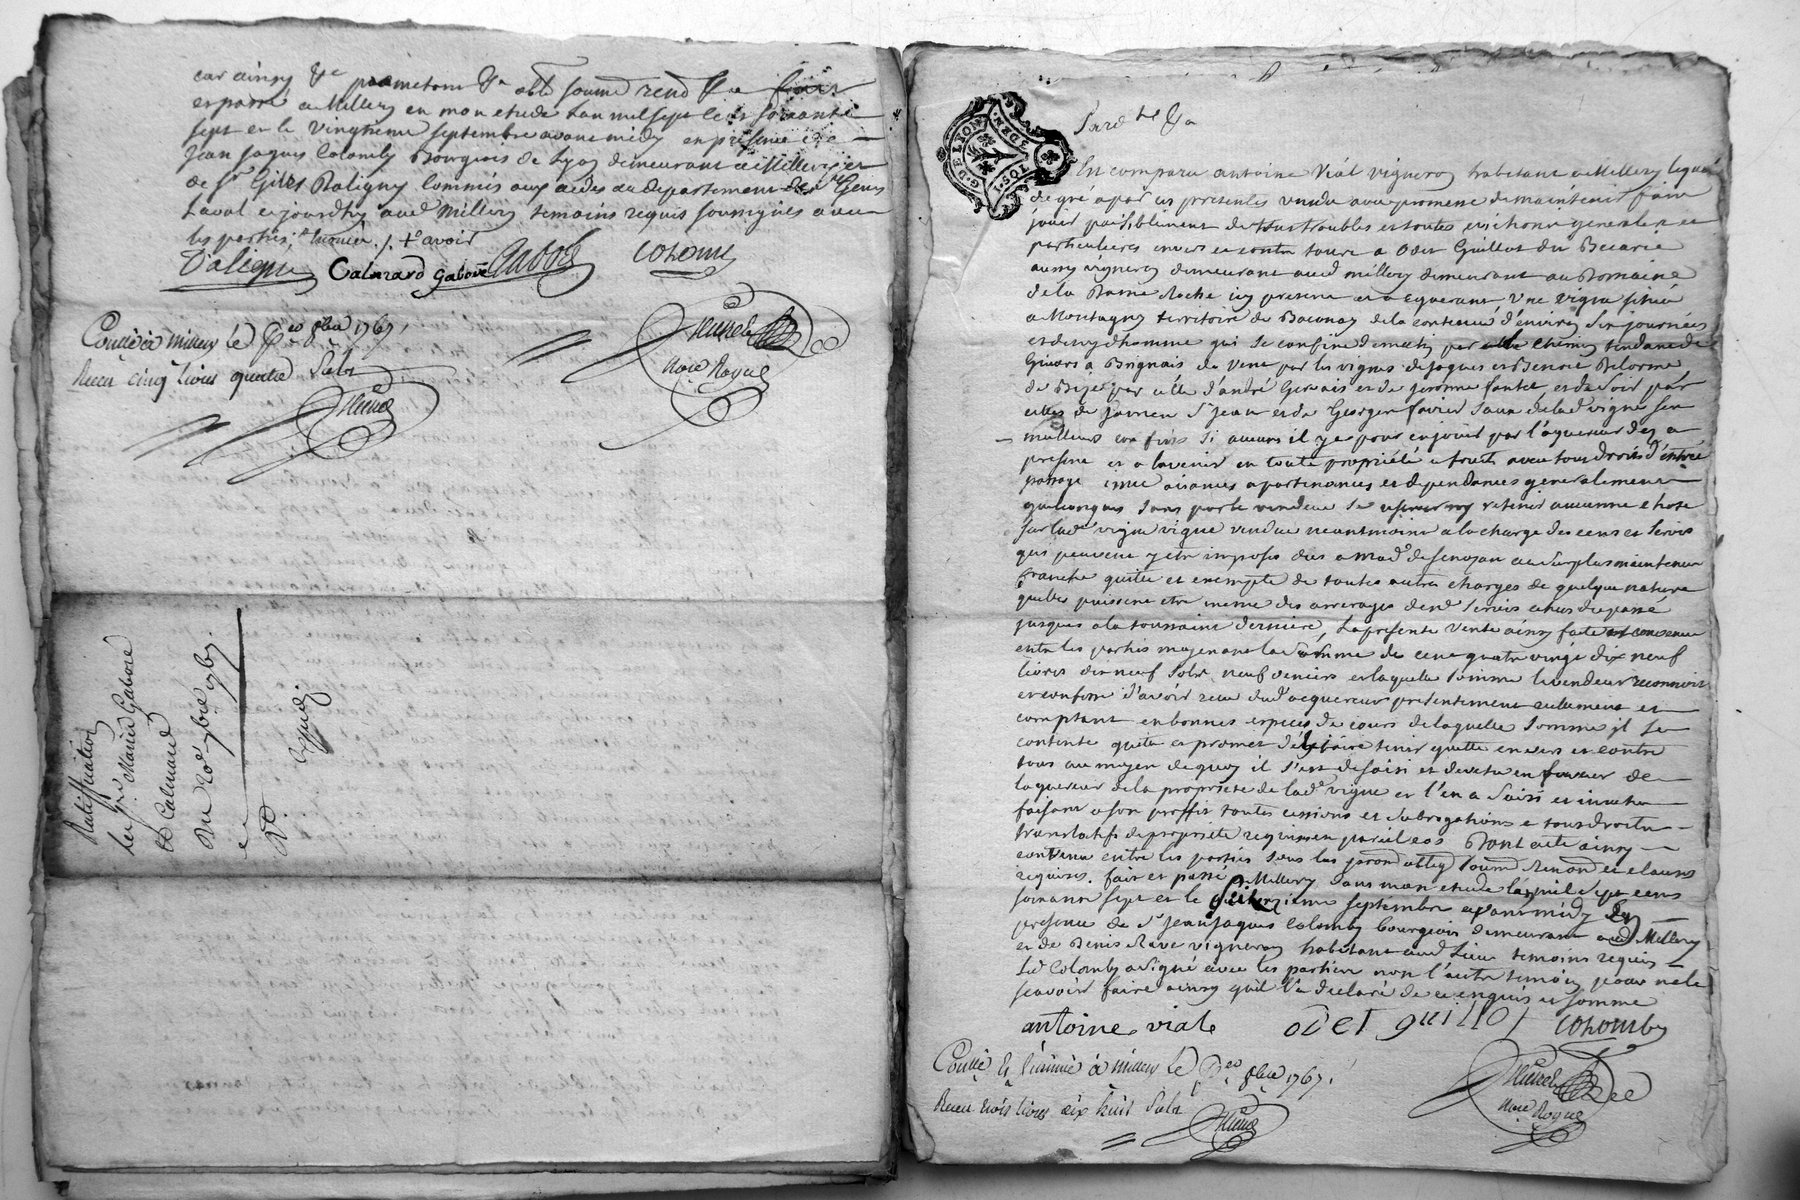 car ainsy &c prometant &c obl soumd rend &c fait
et passé a Millery en mon etude l'an mil sept cents soixante
sept et le vingtieme septembre avant midy en présence de
Jean Jaques Colomby Bourgeois de Lyon demeurant a Millery et
de Sr Giles Baligny Commis aux aides au departement de St Genis
Laval et jourdhuy aud Millery temoins requis soussignés avec
les parties
Calmard gabore Gabore Colomby
Contlé à Millery le 8bre 1767,
Receu cinq livres quatre Sols
Nore Royal
Ratiffication
par Marie Gabore
et Calmard
Du 20e 7bre 1767.
Expedié
G. DE LION
3 DEN.
Pard te &a
En comparu antoine Vial vigneron habitant a Millery lequel
de gré a par ces presentes vendu avec promesse de maintenir faire
jouir paisiblement de tous troubles et toutes evictions generales et
particulieres envers et contre tous a Odet Guillot dit Becarie
aussy vigneron demeurant aud Millery demeurant au Domaine
de la Dame Roche icy present et acquerant Une vigne située
a Montagny territoire de Baconay de la contenue d'environ six journées
et demy d'homme qui se confine de matin par le Chemin tendant de
Givors a Brignais de vent par les vignes de Jaques et Benoit Delorme
de Bize par celle d'andré Gervais et de jerome fantet et de soir par
celles de Damien St Jean et de Georges favier sauf de lad vigne ses
meilleurs confins si aucuns il y a pour en jouir par l'aquereur des a
present et a l'avenir en toute proprieté et fruits avec tous droits d'entrée
passage issue aisances apartenances et dependances generalement
quelconques sans par le vendeur se reserver ny retenir aucunne chose
sur lad vigne vendue neantmoins a la charge des cens et servis
qui peuvent y etre imposés dus a Madе de Senozan au surplus maintenue
franche quitte et exempte de toutes autres charges de quelque nature
quelles puissent etre meme des arrerages desd servis echus du passé
jusques a la toussaint derniere, La presente vente ainsy faite et convenue
entre les parties moyenant la somme de cent quatre vingt dix neuf
livres dix neuf sols neuf deniers et laquelle somme le vendeur reconnoit
et confesse d'avoir receu dud acquereur presentement reellement et
comptant en bonnes especes de cours de laquelle somme il se
contente quitte et promet de faire tenir quitte envers et contre
tous au moyen de quoy il s'est desaisi et devetu en faveur de
laquereur de la proprieté de lad vigne et l'en a saisi et investu
faisant a son proffit toutes cessions et subrogations et tous droits
translatifs de proprieté requis en pareil cas Dont acte ainsy
convenu entre les parties sous les promd obligs soumd renond et clauses
requises. fait et passé a Millery dans mon etude l'an mil sept cents
soixante sept et le septembre avant midy en
presence de Sr Jean Jaques Colomby bourgeois demeurant aud Millery
et de Denis Rave vigneron habitant aud Lieu temoins requis
Led Colomby a signé avec les parties non l'autre temoin pour ne le
scavoir faire ainsy quil l'a declaré de ce enquis et sommé
antoine viale odet guillot Colomby
Contlé à Millery le 8bre 1767,
Receu trois livres dix huit Sols
Nore Royal